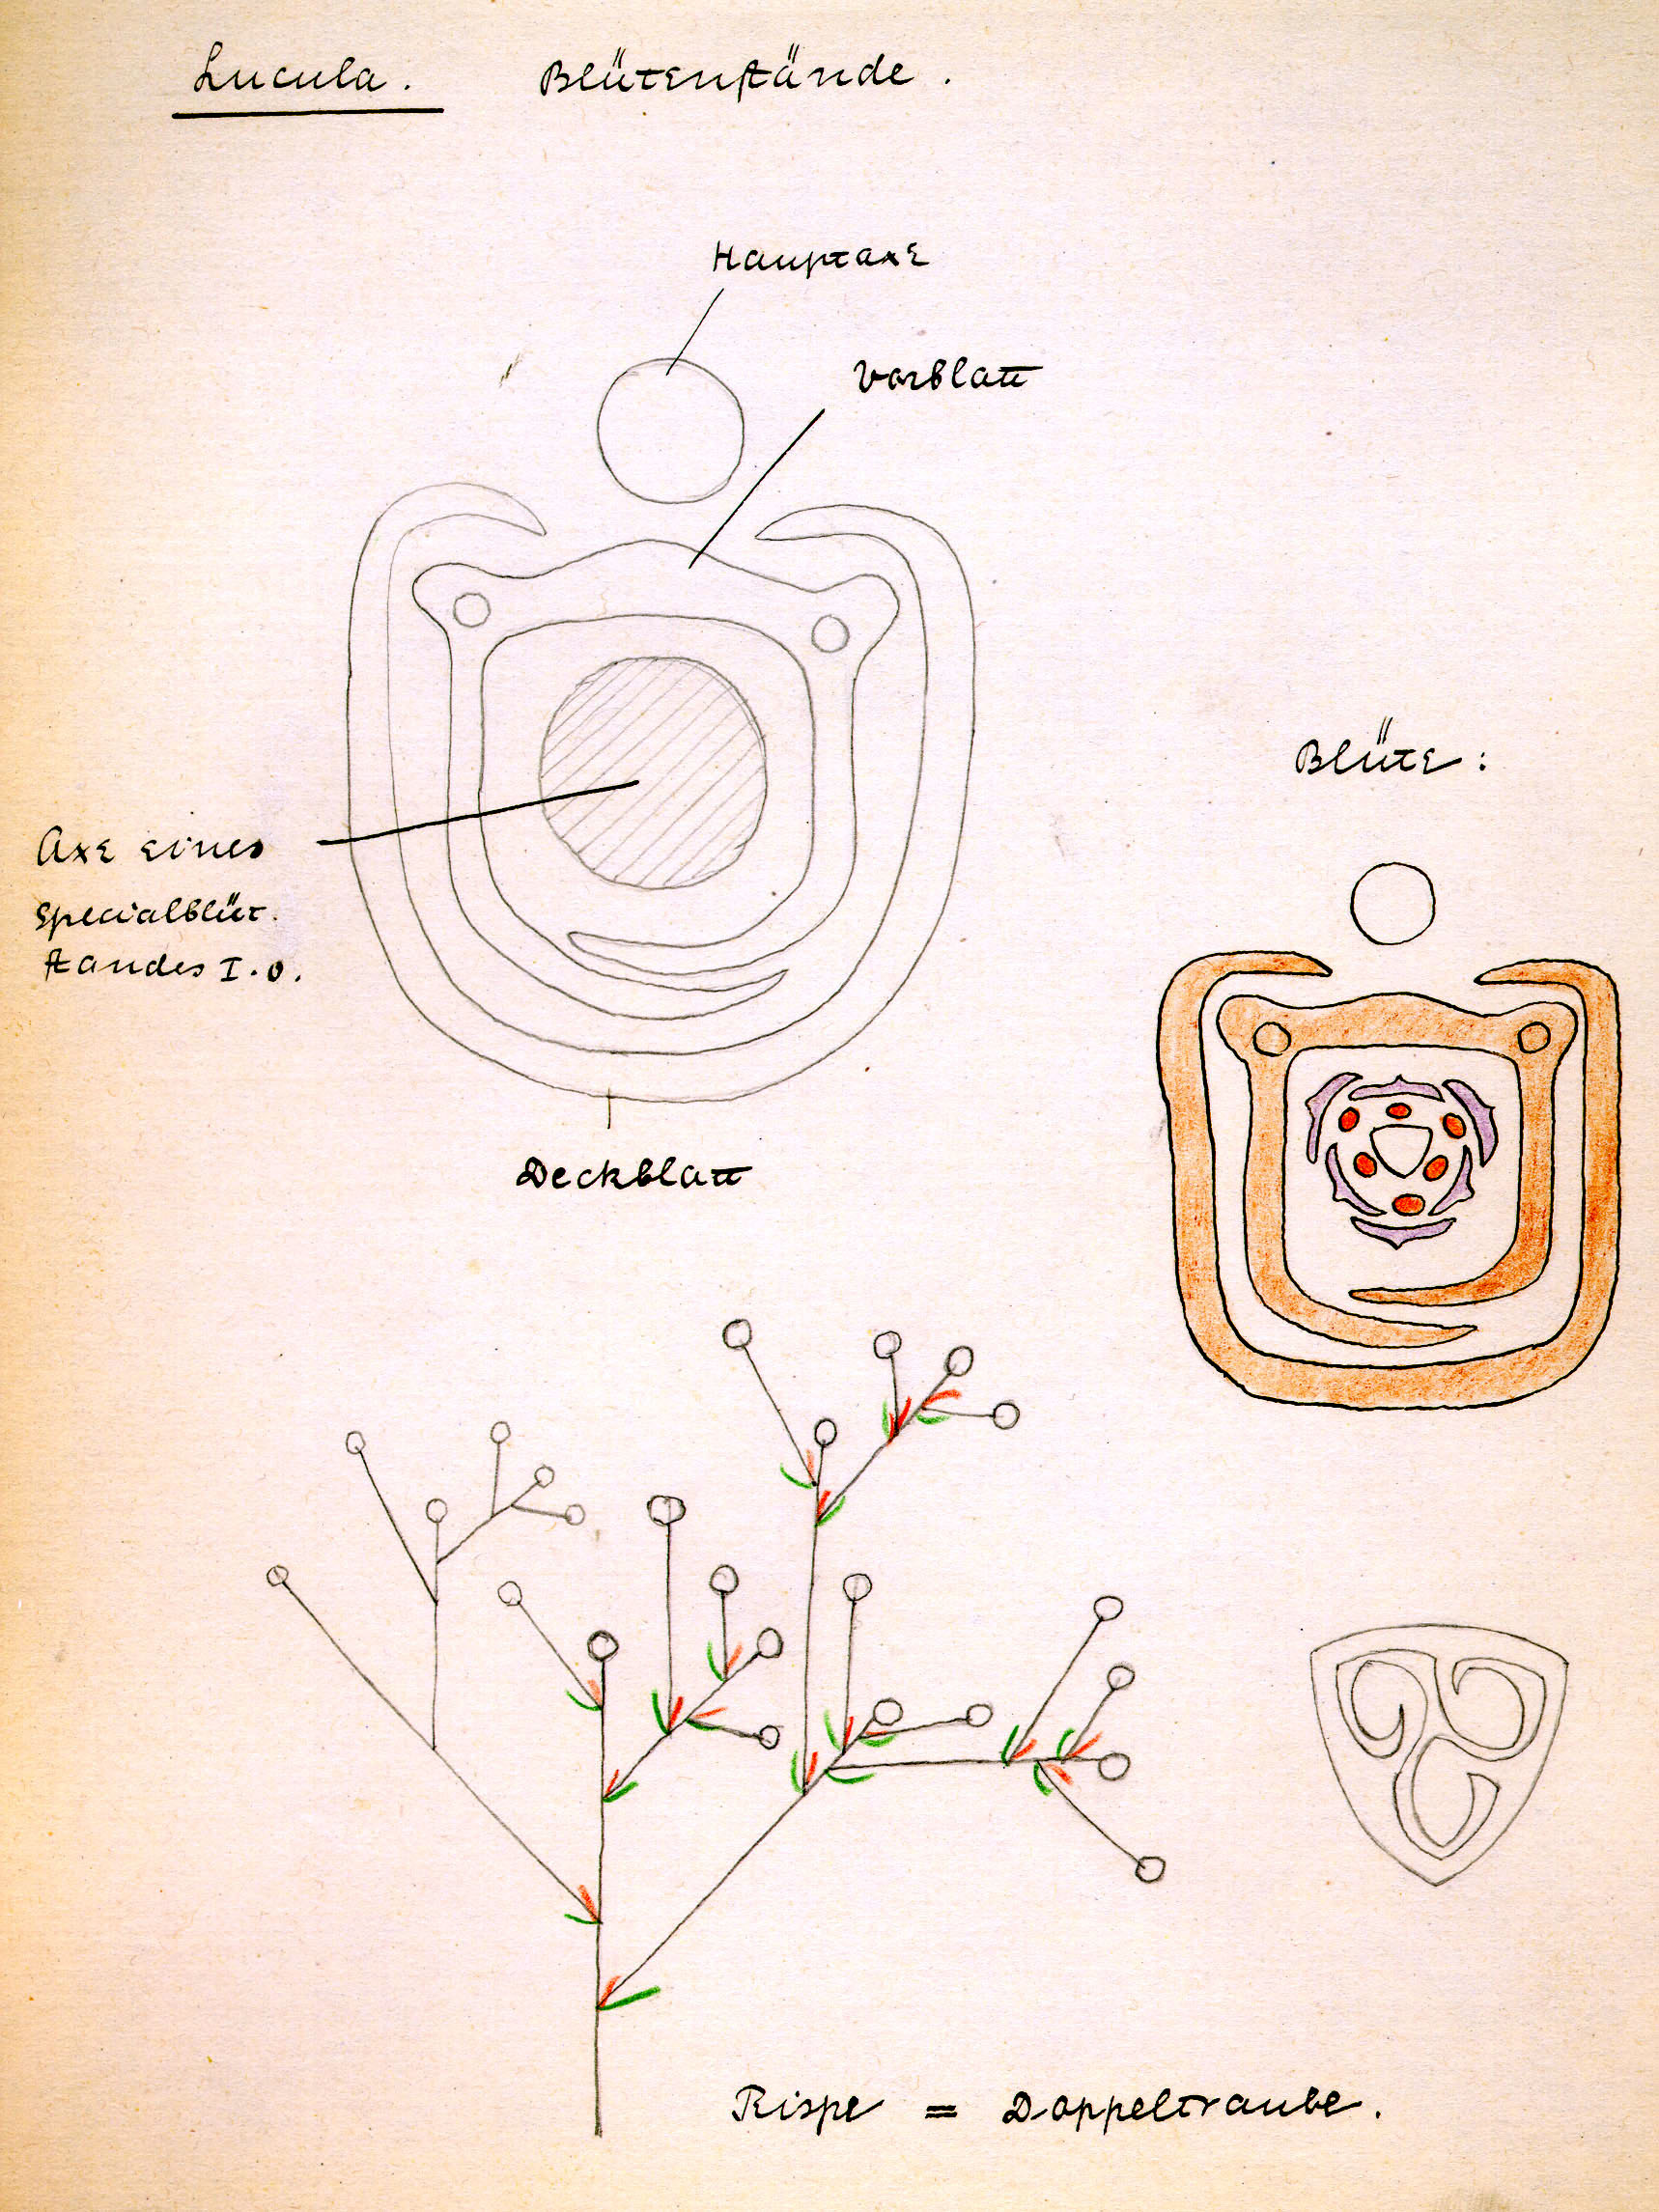 Lucula. Blütenstände.
Hauptaxe
Vorblatt
Blüte:
Axe eines
Specialblüt.
standes I.O.
Deckblatt
Rispe = Doppeltraube.